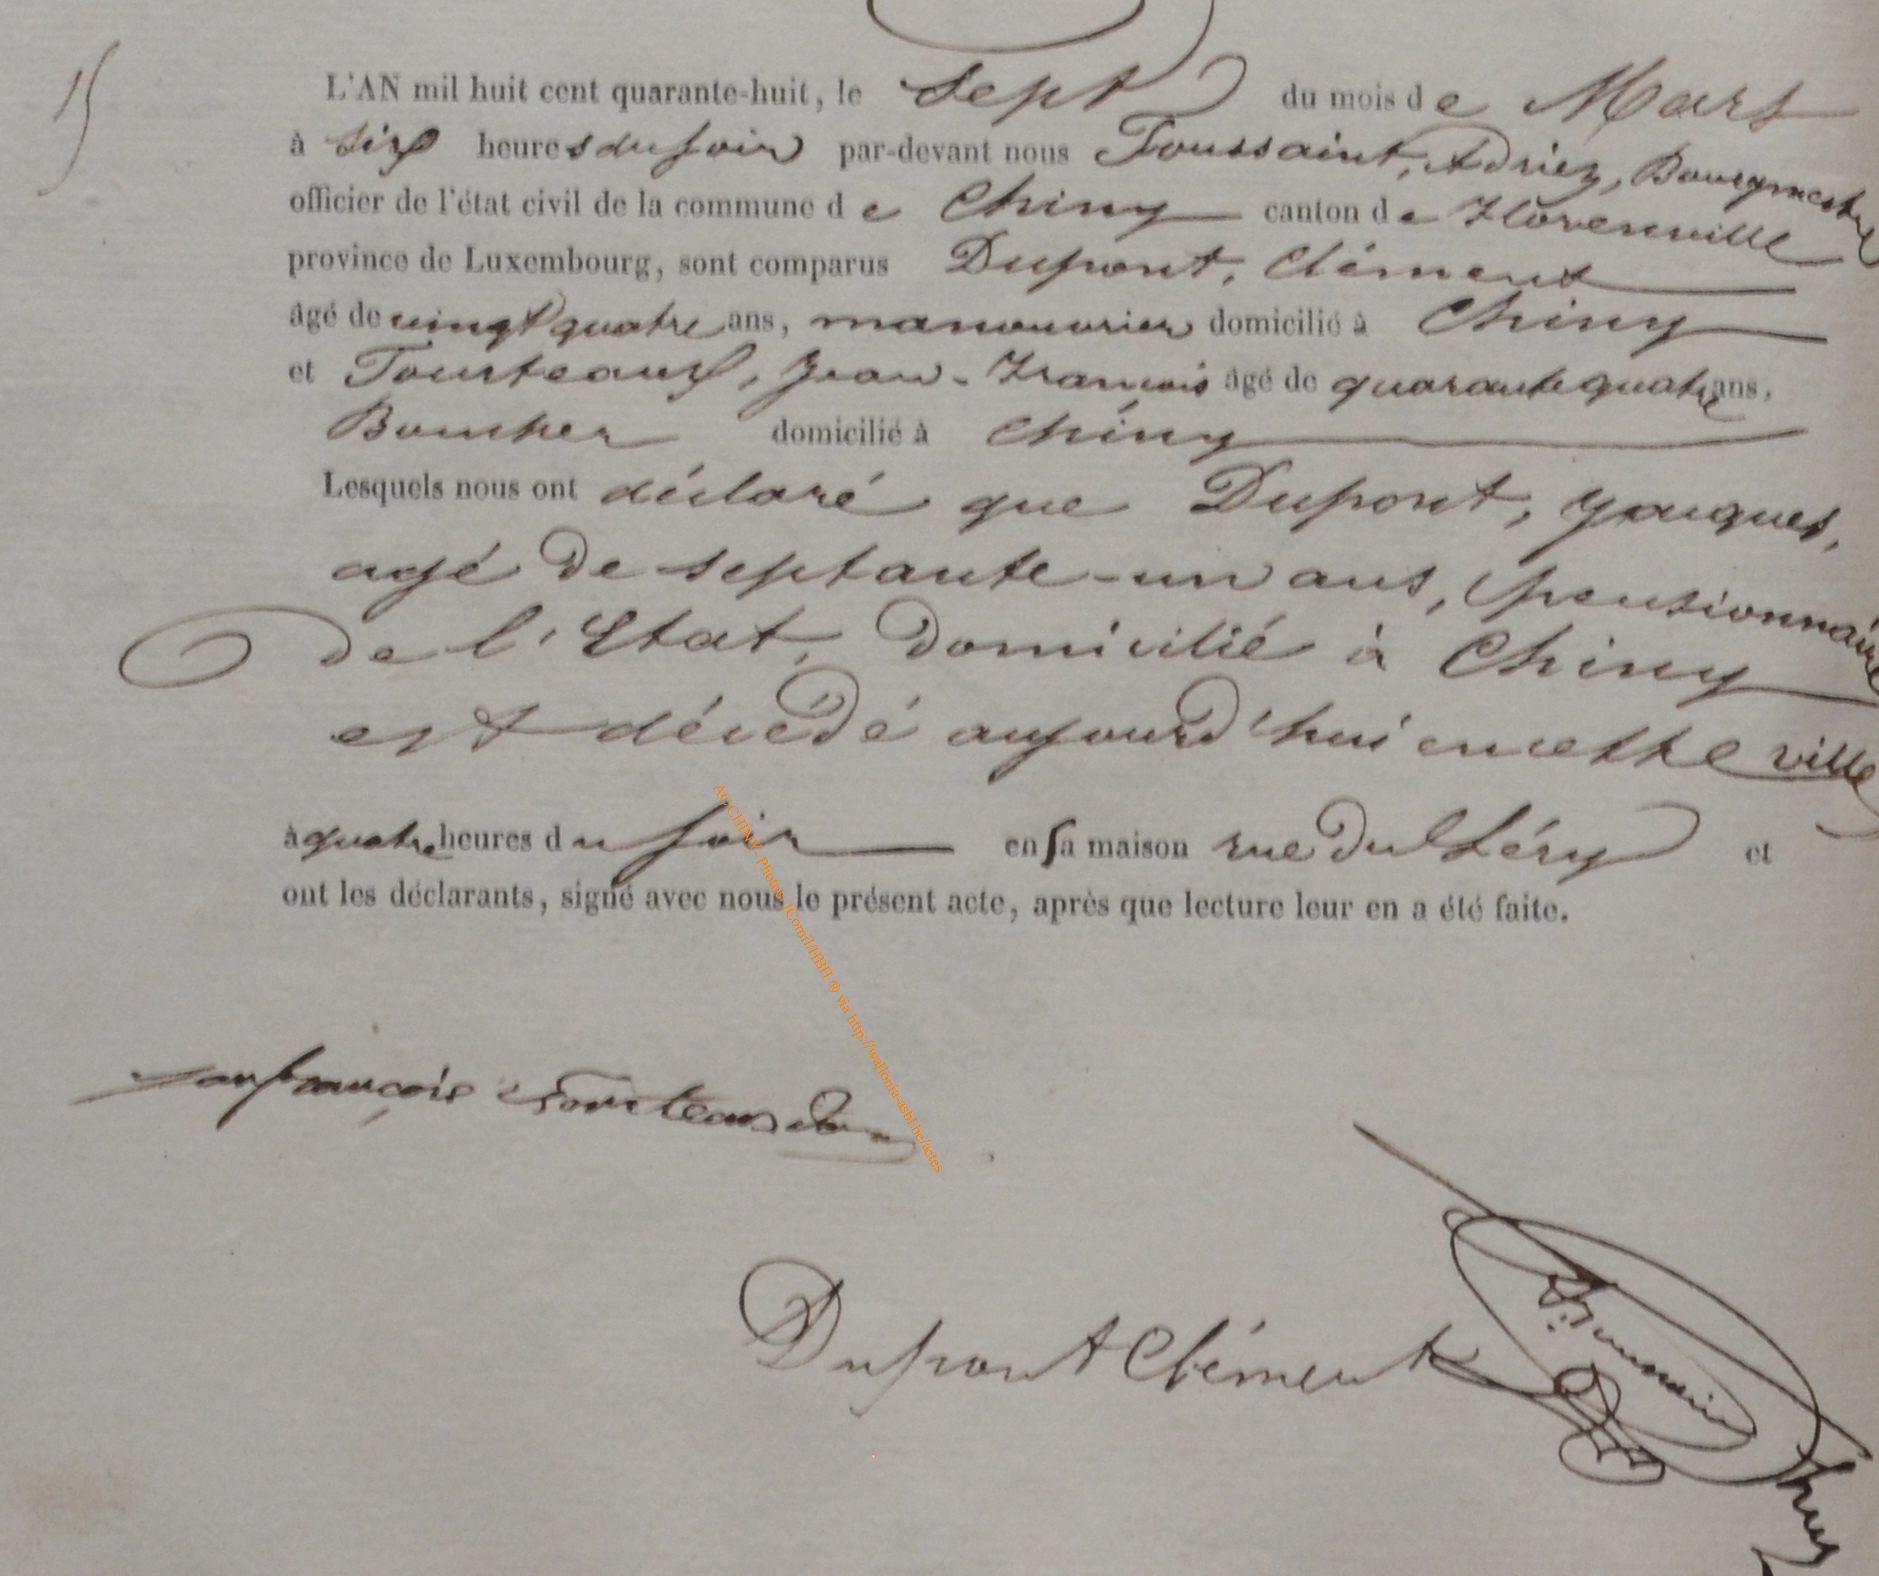 15
L'AN mil huit cent quarante-huit, le sept du mois de Mars
à six heures du soir par-devant nous Toussaint, Adrien, Bourgmestre
officier de l'état civil de la commune de Chiny canton de Florenville
province de Luxembourg, sont comparus Dupont, Clément
âgé de vingt quatre ans, manouvrier domicilié à Chiny
et Tourteaux, Jean-François âgé de quarante quatre ans,
Boucher domicilié à Chiny
Lesquels nous ont déclaré que Dupont, Jacques,
agé de septante-un ans, pensionnaire
de l'Etat, domicilié à Chiny
est décédé aujourd'hui en cette ville
à quatre heures du soir en sa maison rue du Léry et
ont les déclarants, signé avec nous le présent acte, après que lecture leur en a été faite.
AC CHINY- Photos JCornd/IBJH @ via http://wallonia-asbl.be/actes
jean françois tourteaux
Dupont Clément